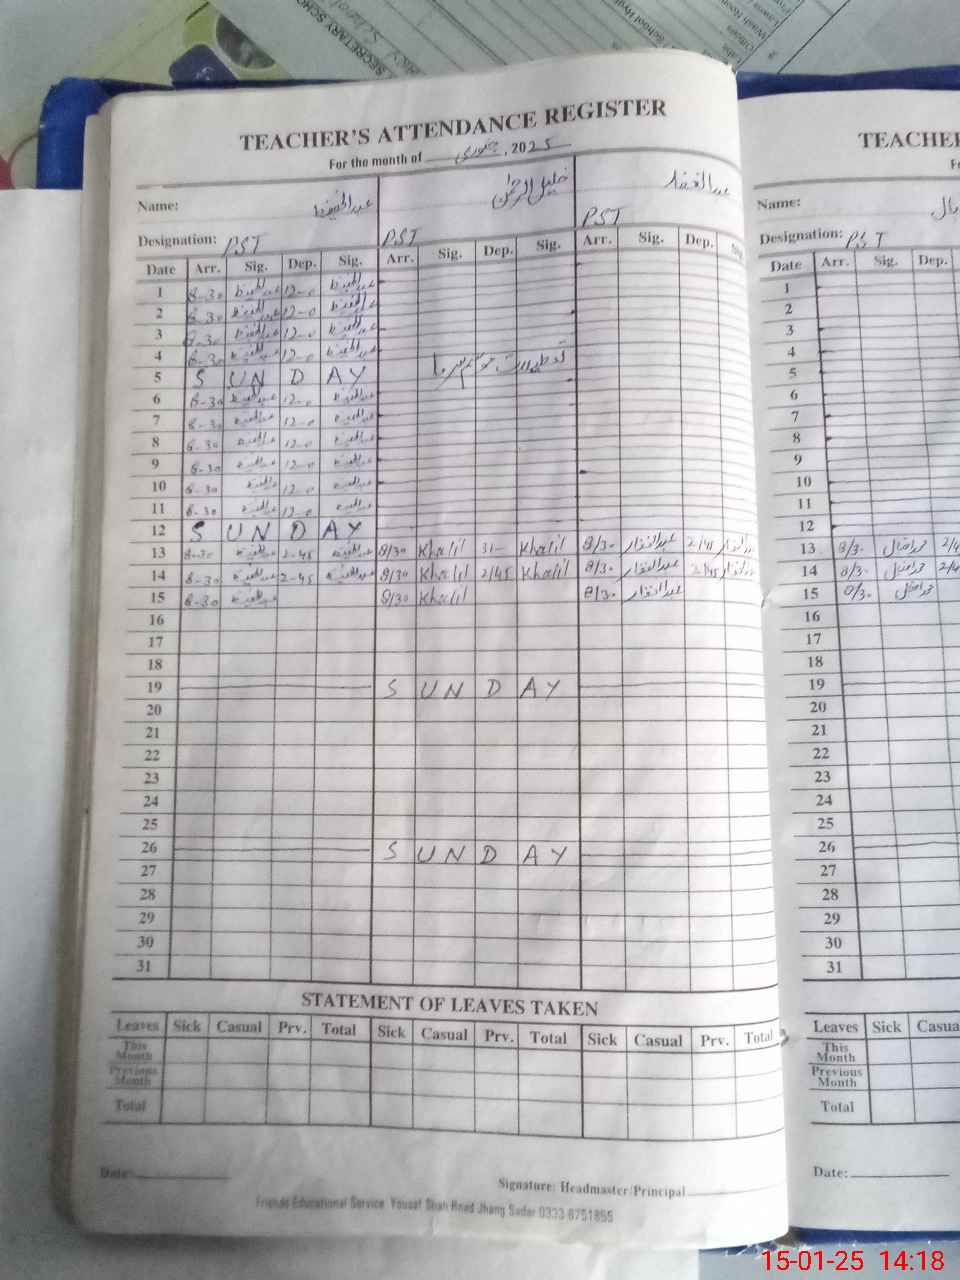 SECRETARY SCHO
School Hy
Wash Room
TEACHER'S ATTENDANCE REGISTER
For the month of جنوری, 2025
Name: عبدالحفیظ خلیل الرحمن عبدالغفار
Designation: PST PST PST
Date Arr. Sig. Dep. Sig. Arr. Sig. Dep. Sig. Arr. Sig. Dep. Sig.
1 8-30 عبدالحفیظ 12-0 عبدالحفیظ
2 8-30 عبدالحفیظ 12-0 عبدالحفیظ
3 8-30 عبدالحفیظ 12-0 عبدالحفیظ
4 8-30 عبدالحفیظ 12-0 عبدالحفیظ تعطیلات موسم سرما
5 SUNDAY
6 8-30 عبدالحفیظ 12-0 عبدالحفیظ
7 8-30 عبدالحفیظ 12-0 عبدالحفیظ
8 8-30 عبدالحفیظ 12-0 عبدالحفیظ
9 8-30 عبدالحفیظ 12-0 عبدالحفیظ
10 8-30 عبدالحفیظ 12-0 عبدالحفیظ
11 8-30 عبدالحفیظ 12-0 عبدالحفیظ
12 SUNDAY
13 8-30 عبدالحفیظ 2-45 عبدالحفیظ 8/30 Khalil Khalil 8/30 عبدالغفار 2/45 عبدالغفار
14 8-30 عبدالحفیظ 2-45 عبدالحفیظ 8/30 Khalil 2/45 Khalil 8/30 عبدالغفار 2/45 عبدالغفار
15 8-30 عبدالحفیظ 8/30 Khalil 8/30 عبدالغفار
16
17
18
19 SUNDAY
20
21
22
23
24
25
26 SUNDAY
27
28
29
30
31
STATEMENT OF LEAVES TAKEN
Leaves Sick Casual Prv. Total Sick Casual Prv. Total Sick Casual Prv. Total
This Month
Previous Month
Total
Date:
Signature: Headmaster/Principal
Friends Educational Service Yousaf Shah Road Jhang Sadar 0333-8751855
TEACHER
Name:
Designation: PST
Date Arr. Sig. Dep.
1
2
3
4
5
6
7
8
9
10
11
12
13 8/30 2/4
14 8/30 2/4
15 8/30
16
17
18
19
20
21
22
23
24
25
26
27
28
29
30
31
Leaves Sick Casua
This Month
Previous Month
Total
Date:
15-01-25 14:18